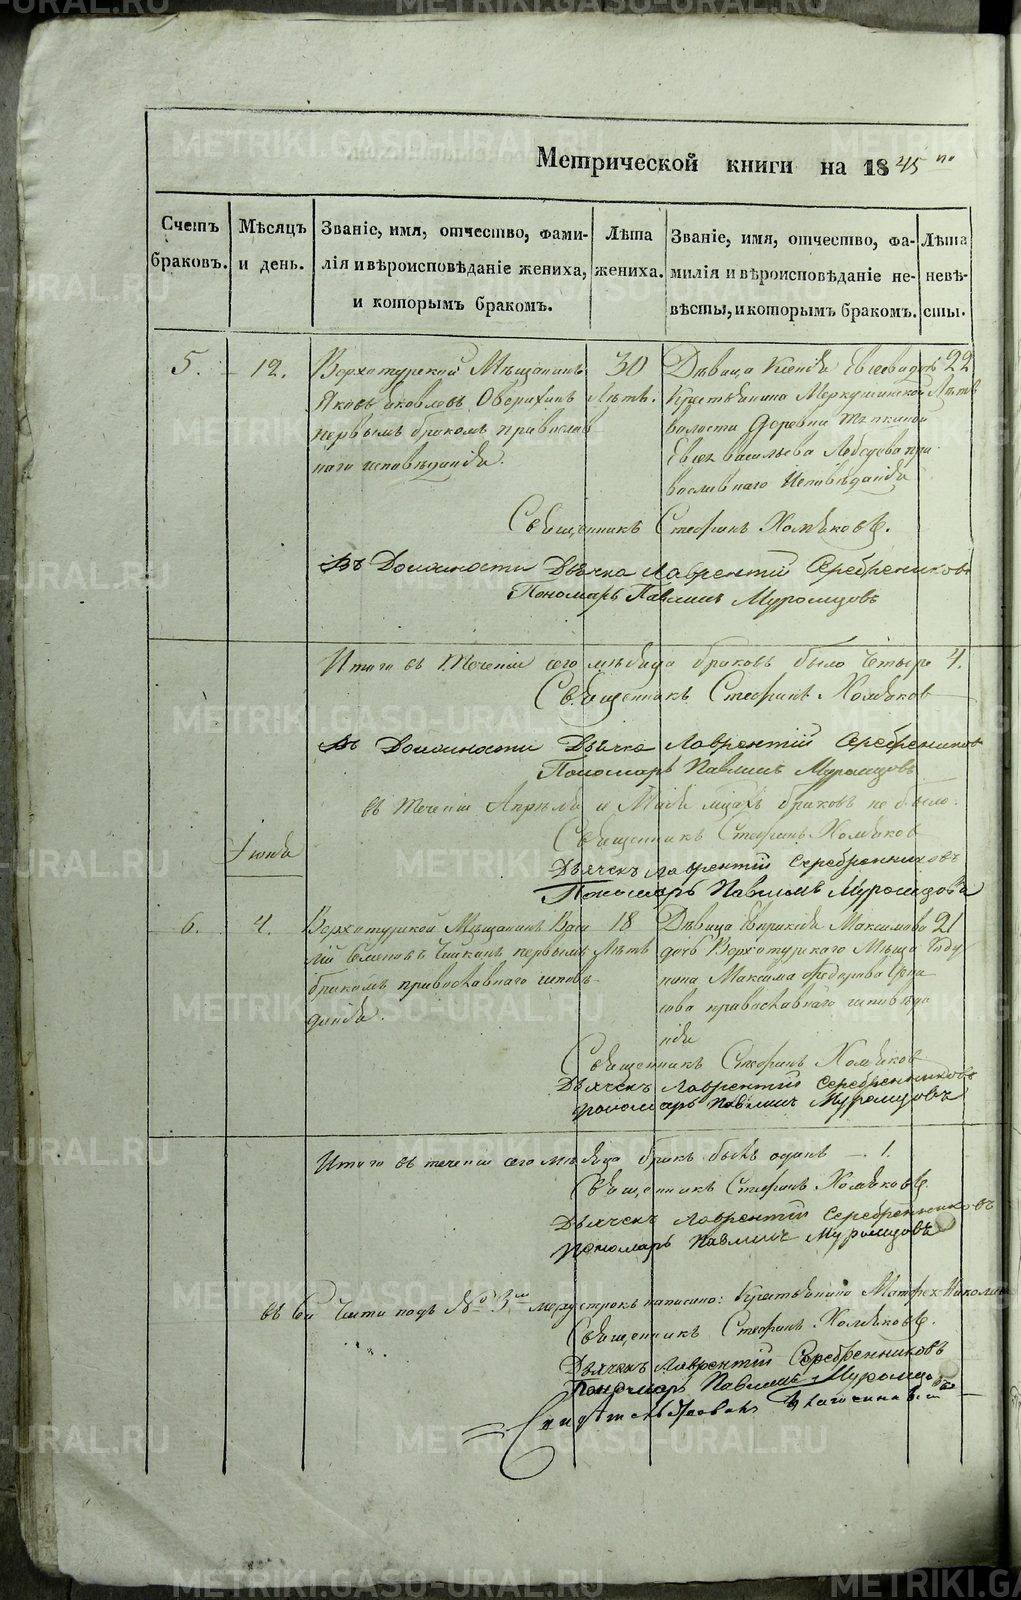 METRIKI.GASO-URAL.RU
Метрической книги на 1845 го
Счетъ браковъ.
Мѣсяцъ и день.
Званіе, имя, отчество, фами-
лія и вѣроисповѣданіе жениха,
и которымъ бракомъ.
Лѣта
жениха.
Званіе, имя, отчество, фа-
милія и вѣроисповѣданіе не-
вѣсты, и которымъ бракомъ.
Лѣта
невѣ-
сты.
5.
12.
Верхотурской Мѣщанинъ
Яковъ Яковлевъ
первымъ бракомъ православ
наго исповѣданія.
30
Лѣтъ.
Дѣвица Ксенія Евсеева дочь
Крестьянина Меркушинской
волости Деревни
Евсея Васильева Лебедева пра
вославнаго исповѣданія
22
Лѣтъ
Священникъ Стефанъ Хомяковъ.
Въ Должности Дьячка Лаврентій Серебренниковъ
Пономарь Павлинъ Муромцовъ
Итого въ теченіи сего мѣсяца браковъ было четыре 4.
Священникъ Стефанъ Хомяковъ
Въ Должности Дьячка Лаврентій Серебренниковъ
Пономарь Павлинъ Муромцовъ
въ теченіи Апрѣля и Майя мцахъ браковъ не было:
Священникъ Стефанъ Хомяковъ
Дьячекъ Лаврентій Серебренниковъ
Пономарь Павлинъ Муромцовъ
Іюня
6.
4.
Верхотурской Мѣщанинъ Васи
лій Семеновъ первымъ
бракомъ православнаго исповѣ-
данія.
18
Лѣтъ
Дѣвица Евпраксія Максимова
дочь Верхотурскаго Мѣща
нина Максима Федорова
православнаго исповѣда
нія
21
Году
Священникъ Стефанъ Хомяковъ
Дьячекъ Лаврентій Серебренниковъ
Пономарь Павлинъ Муромцовъ
Итого въ теченіи сего мѣсяца бракъ былъ одинъ — 1.
Священникъ Стефанъ Хомяковъ.
Дьячекъ Лаврентій Серебренниковъ
Пономарь Павлинъ Муромцовъ
въ сей части подъ № 3м между строкъ написано: Крестьянина
Священникъ Стефанъ Хомяковъ.
Дьячекъ Лаврентій Серебренниковъ
Пономарь Павлинъ Муромцовъ
Свидѣтельствовалъ Благочинный